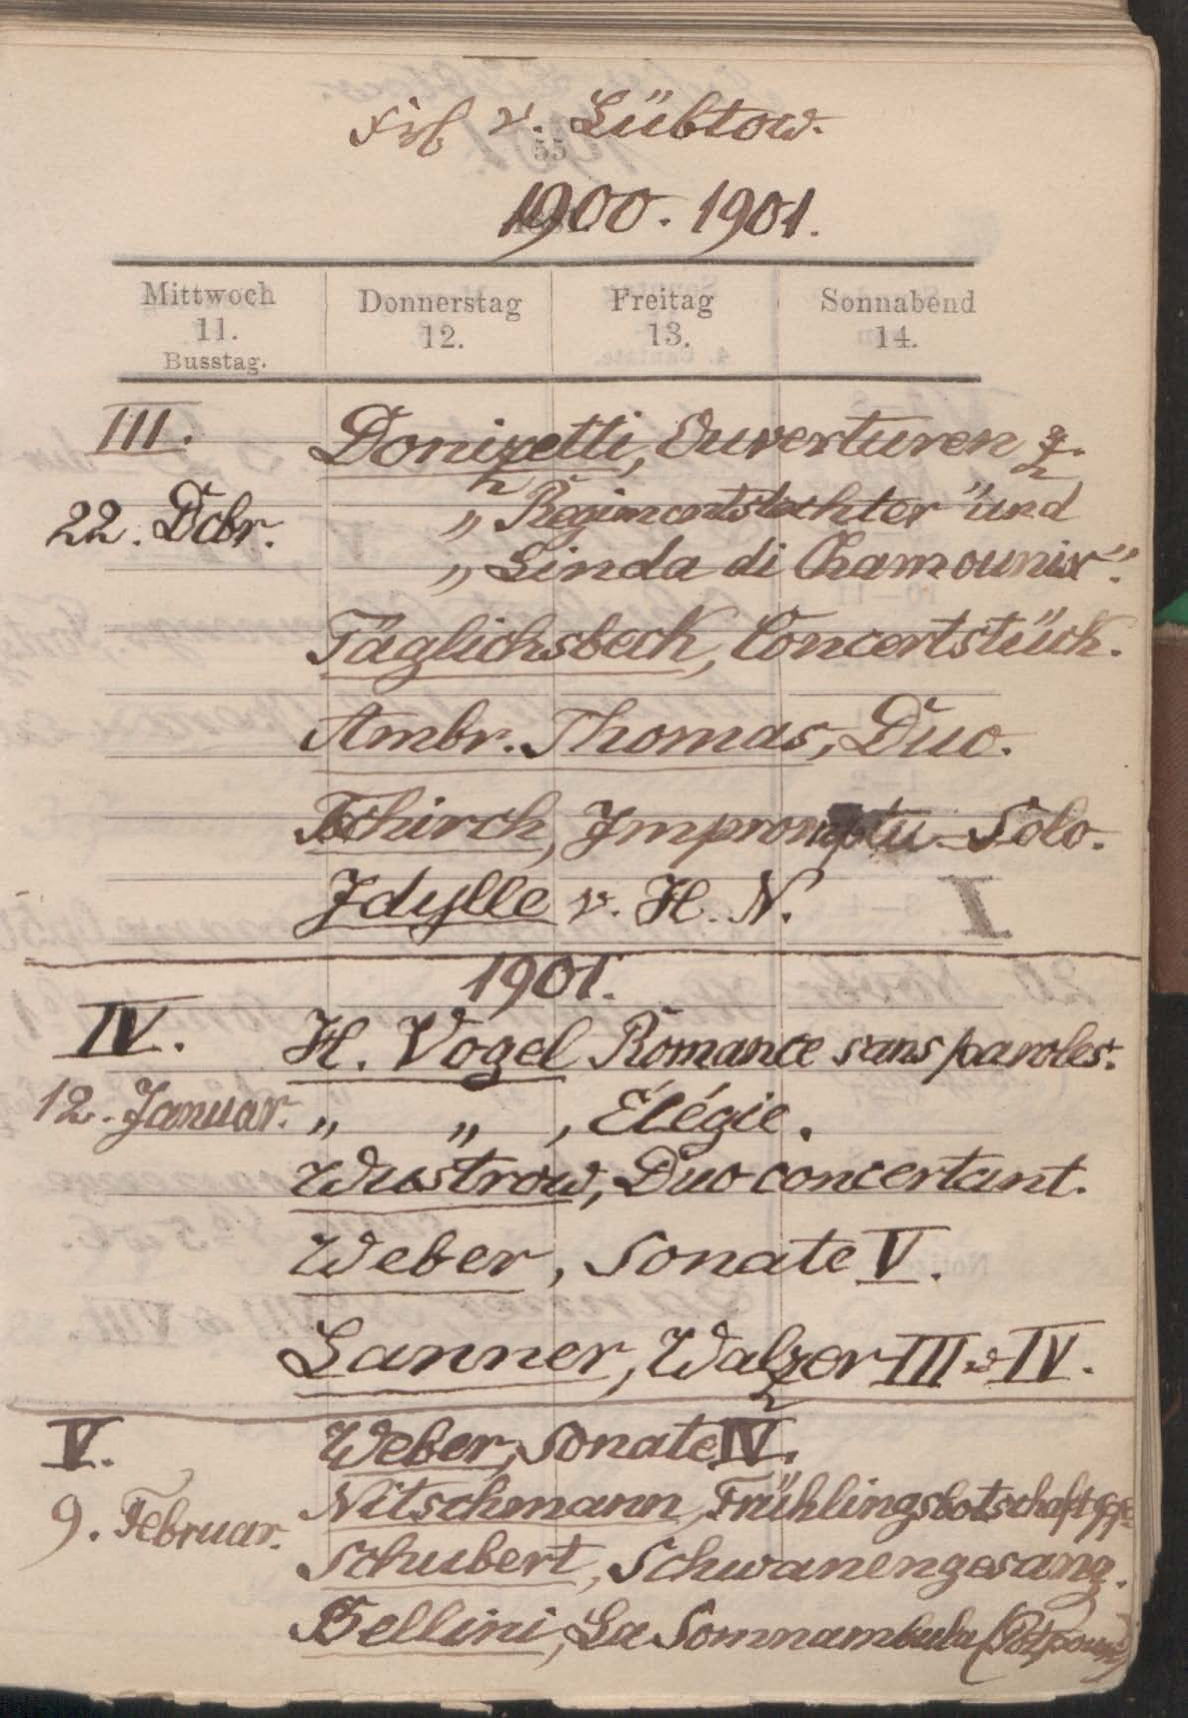 Frl v. Lübtow.
55
1900. 1901.
Mittwoch Donnerstag Freitag Sonnabend
11. 12. 13. 14.
Busstag.
III. Donizetti, Ouverturen z.
22. Dcbr. „Regimentstochter" und
„Linda di Chamounix".
Täglichsbeck, Concertstück.
Ambr. Thomas, Duo.
Tschirch, Impromptu-Solo.
Idylle v. H. N.
1901.
IV. H. Vogel Romance sans paroles.
12. Januar. „ „ , Élégie.
Wustrow, Duo concertant.
Weber, Sonate V.
Lanner, Walzer III u IV.
V. Weber, Sonate IV.
9. Februar. Nitschmann, Frühlingsbotschaft
Schubert, Schwanengesang.
Bellini, La Somnambula (Potpourri)